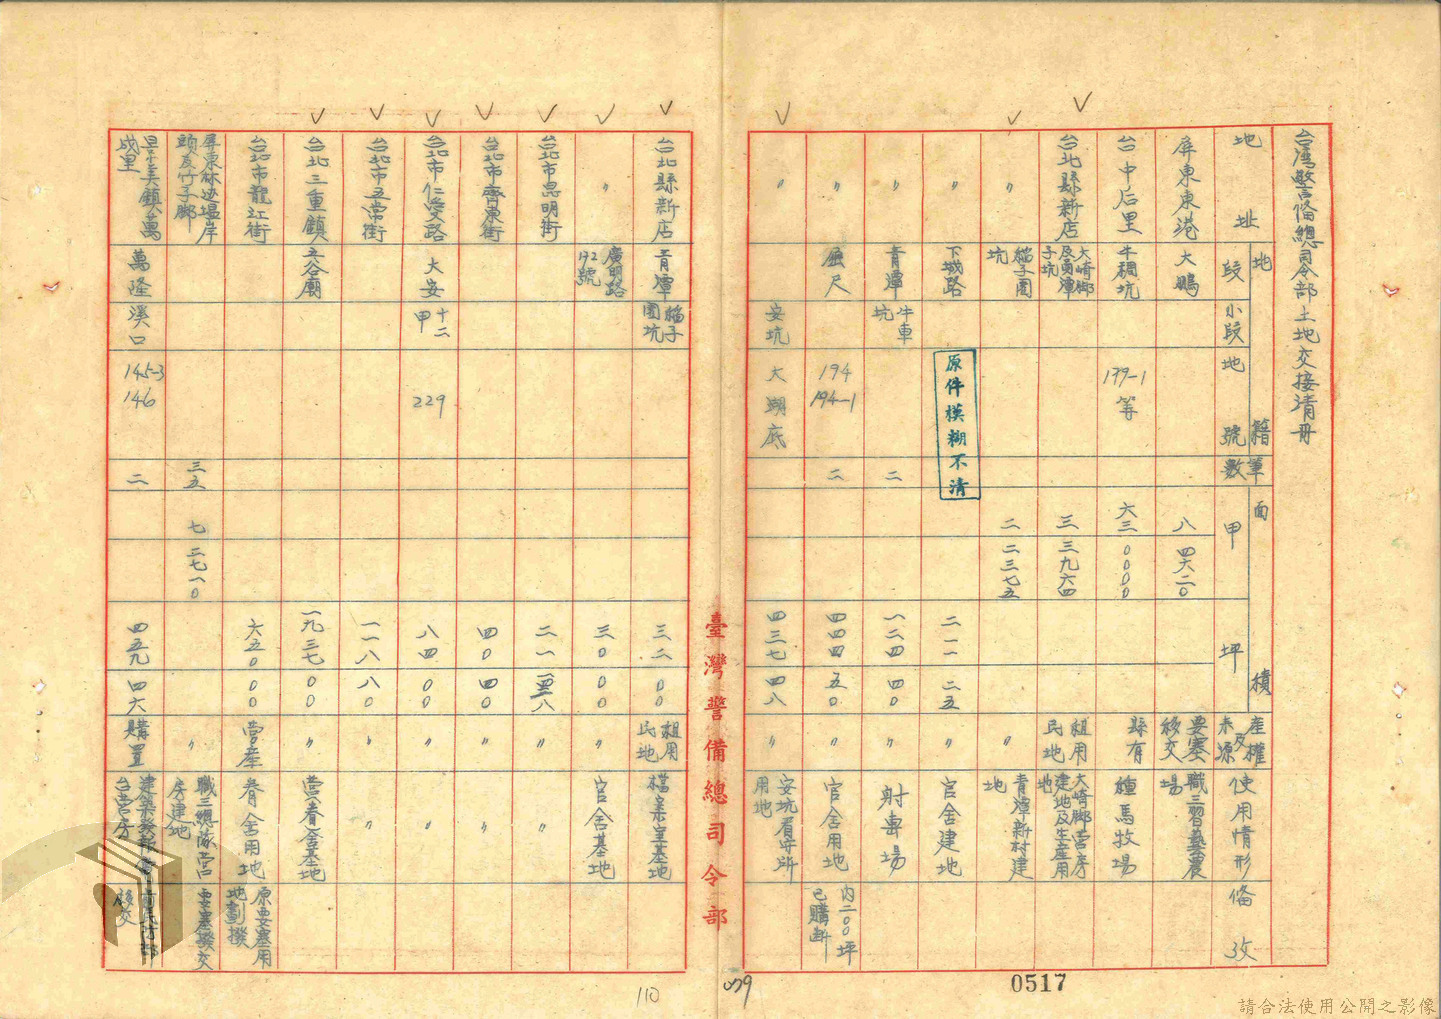 台灣警備總司令部土地交接清冊
地址
地籍
段
小段
地號
筆數
面積
甲
坪
產權及來源
使用情形
備攷
屏東東港
大鵬
八
四六二〇
要塞移交
職三習藝農場
台中后里
牛稠坑
179-1等
六三
〇〇〇〇
縣有
種馬牧場
台北縣新店
大崎脚及員潭子坑
三
三九六四
租用民地
大崎脚營房建地及生產用地
〃
稻子園坑
二
二三七五
〃
青潭新村建地
〃
下城路
二一一
二五
〃
官舍建地
原件模糊不清
〃
青潭
牛車坑
二
一二四
四〇
〃
射擊場
〃
屈尺
194
194-1
二
四四四
五〇
〃
官舍用地
內二〇〇坪已購斷
〃
安坑
大湖底
四三七
四八
〃
安坑看守所用地
臺灣警備總司令部
台北縣新店
青潭
稻子園坑
三二
〇〇
租用民地
檔案室基地
〃
廣明路192號
三〇
〇〇
〃
官舍基地
台北市思明街
二一
〃
〃
台北市齊東街
四〇
四〇
〃
〃
台北市仁愛路
大安
十二甲
229
八四
〇〇
〃
〃
台北市五常街
一一八
八〇
〃
〃
台北三重鎮
五谷廟
一九三七
〇〇
〃
營眷舍基地
台北市龍江街
六五〇
〇〇
營產
眷舍用地
原要塞用地劃撥
屏東林边塭岸頭及竹子脚
三五
七
二七一〇
〃
職三總隊營房建地
要塞撥交
美鎮萬成里
萬隆
溪口
145-3
146
二
四五九
四六
購置
台營房
移交
110
079
0517
請合法使用公開之影像